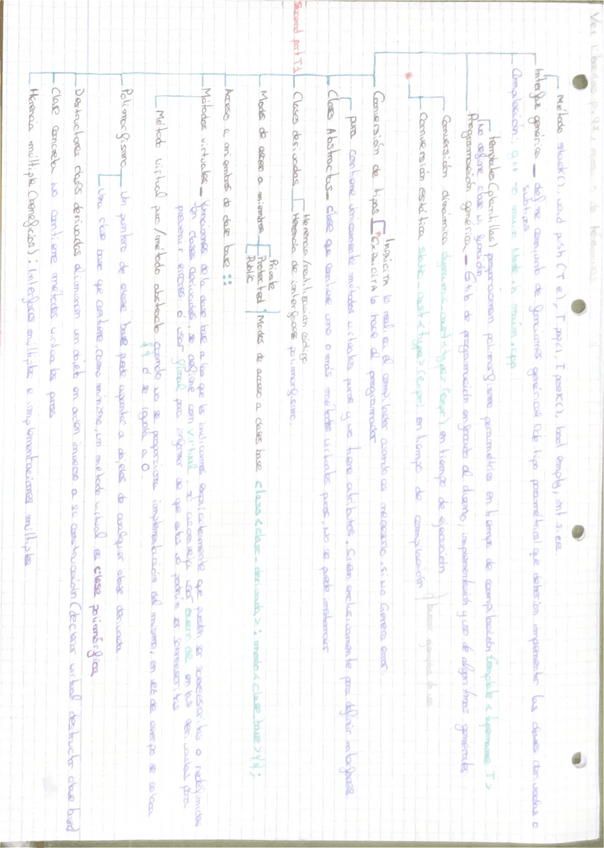 Método stack(), void push(T e), T pop(), T peek(), bool empty, int size
Interfaz genérica — define conjunto de funciones genéricas (de tipo parametrizado) que deberían implementar las clases derivadas o
subtipos
Compilación: g++ -o main Stack.h main.cpp
templates (plantillas) proporcionan polimorfismo paramétrico en tiempo de compilación template <typename T>
no define clase ni función
Programación genérica — Estilo de programación enfocado al diseño, implementación y uso de algoritmos generales
Conversión dinámica dynamic_cast<type>(expr) en tiempo de ejecución
Conversión estática static_cast<type>(expr) en tiempo de compilación
Conversión de tipos
Implícita la realiza el compilador cuando es necesario, si no genera error.
Explícita la hace el programador
pura contiene únicamente métodos virtuales puros y no tiene atributos. Sirven exclusivamente para definir interfaces
Clases Abstractas — clase que contiene uno o más métodos virtuales puros, no se puede instanciar
Second part T3
Clases derivadas
Herencia/reutilización código
Herencia de interfaces polimorfismo.
Modos de acceso a miembros
Private
Protected
Public
Modos de acceso a clases base class <clase_derivada> : modo <clase_base> {};
Acceso a miembros de clase base ::
Métodos virtuales — funciones de la clase base a las que le indicamos explícitamente que pueden ser sobreescritas o redefinidas
en clases derivadas, se define con virtual, se aconseja usar override en las derivadas para
prevenir errores o usar final para asegurar de que esta no podría ser sobreescrita
Método virtual puro/método abstracto cuando no se proporciona implementación del mismo, en vez de cuerpo se coloca
{} o se iguala a 0
Polimorfismo
Un puntero de clase base puede apuntar a objetos de cualquier clase derivada
Una clase base que contiene como mínimo, un método virtual es clase polimórfica
Destructores clases derivadas eliminan un objeto en orden inverso a su construcción (declarar virtual destructor clase base)
Clase concreta no contiene métodos virtuales puros
Herencia múltiple (
): Interfaces múltiples e implementaciones múltiples